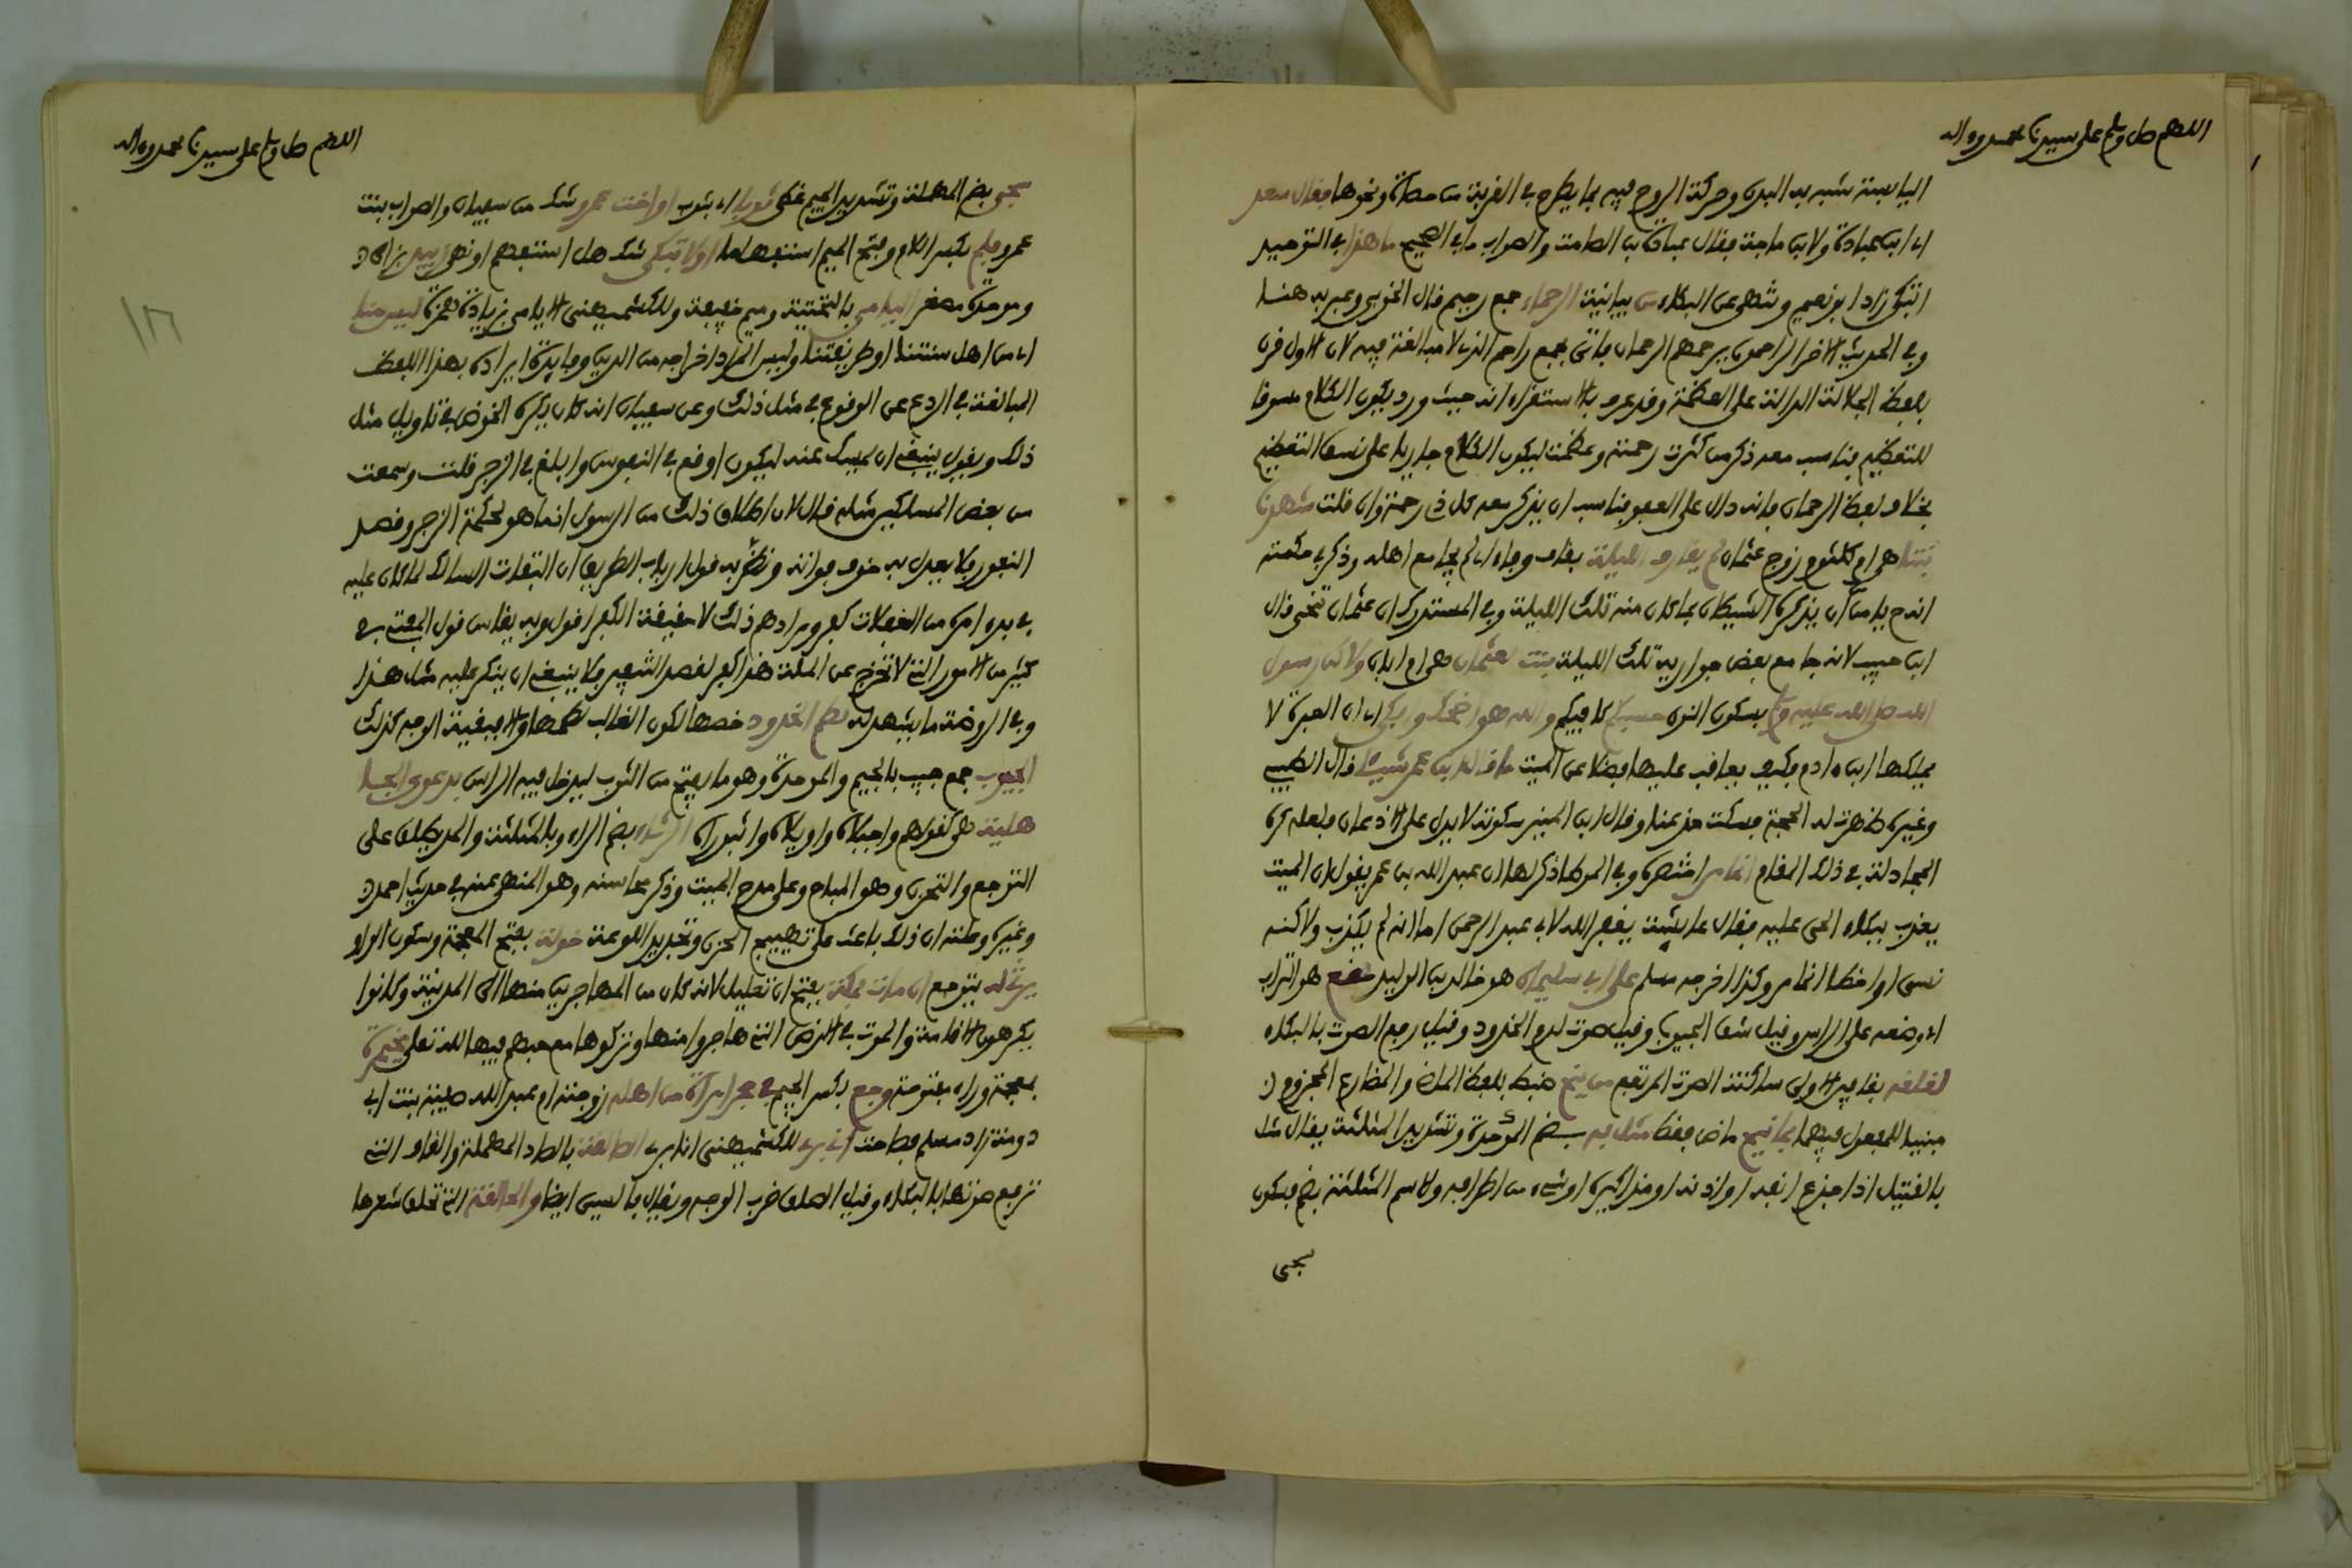 اللهم صل وسلم على سيدنا محمد وءاله
اليابسة شبه به البدن وحركة الروح فيه بما يطرح في القربة من حصاة ونحوها فقال سعد
اي ابن عبادة ولابن ماجة فقال عبادة بن الصامت والصواب ما في الصحيح ما هذا في التوحيد
اتبكي زاد ابو نعيم وتنهى عن البكاء من بيانية الرحماء جمع رحيم قال الخويي وعبر به هنا
وفي الحديث الاخر الراحمون يرحمهم الرحمان فاتى بجمع راحم الذي لا مبالغة فيه لان الاول قرن
بلفظ الجلالة الدالة على العظمة وقد عرف بالاستقراء انه حيث ورد يكون الكلام مسوقا
للتعظيم فناسب معه ذكر من كثرت رحمته وعظمت ليكون الكلام جاريا على نسق التعظيم
بخلاف لفظ الرحمان فانه دال على العفو فناسب ان يذكر معه كل ذي رحمة وان قلت شهدنا
بنتا هي ام كلثوم زوج عثمان لم يقارف الليلة بقاف وفاء اي لم يجامع اهله وذكر في حكمته
انه ح يامن ان يذكره الشيطان بما كان منه تلك الليلة وفي المستدرك ان عثمان تنحى قال
ابن حبيب لانه جامع بعض جواريه تلك الليلة بنت لعثمان هي ام ابان ولاكن رسول
الله صلى الله عليه وسلم بسكون النون حسبكم كافيكم والله هو اضحك وابكى اي ان العبرة لا
يملكها ابن ءادم فكيف يعاقب عليها فضلا عن الميت ما قال ابن عمر شيئا قال الطيبي
وغيره ظهرت له الحجة فسكت مذعنا وقال ابن المنير سكوته لا يدل على الاذعان فلعله كره
المجادلة في ذلك المقام انما مر اختصره وفي الموطا ذكر لها ان عبد الله بن عمر يقول ان الميت
يعذب ببكاء الحي عليه فقال عائشة يغفر الله لابي عبد الرحمن اما انه لم يكذب ولاكنه
نسي او اخطا انما مر وكذا اخرجه مسلم على ابي سليمان هو خالد بن الوليد نقع هو التراب
اي وضعه على الراس وقيل شق الجيوب وقيل صوت لدم الخدود وقيل رفع الصوت بالبكاء
لقلقة بقافين الاولى ساكنة الصوت المرتفع من ينح ضبط بلفظ الماضي والمضارع المجزوم
مبنيا للمفعول فيهما بما نيح ماض فقط مثل به بضم الموحدة وتشديد المثلثة يقال مثل
بالقتيل اذا جذع انفه او اذنه او مذاكيره او شيء من اطرافه والاسم المثلثة بضم فسكون
سجي
اللهم صل وسلم على سيدنا محمد وءاله
سجي بضم المهملة وتشديد الجيم غطي ثوبا اي بثوب او اخت عمرو شك من سفيان والصواب بنت
عمرو فلم بكسر اللام وفتح الميم استفهاما او لا تبكي شك هل استفهم او نهى زبيد بزاي
وموحدة مصغر اليامي بالتحتية وميم خفيفة وللكشميهني الايامي بزيادة همزة ليس منا
اي من اهل سنتنا او طريقتنا وليس المراد اخراجه من الدين وفايدة ايراده بهذا اللفظ
المبالغة في الردع عن الوقوع في مثل ذلك وعن سفيان انه كان يكره الخوض في تاويل مثل
ذلك ويقول ينبغي ان يمسك عنه ليكون اوقع في النفوس وابلغ في الزجر قلت وسمعت
من بعض المسلكين مثله قال لان اطلاق ذلك من الرسول انما هو لحكمة الزجر وقصد
النفور فلا يعدل به خوف فواته ونظر به قول ارباب الطريق ان التفات السالك لما كان عليه
في بدء امره من الغفلات كفر ومرادهم ذلك لا حقيقة الكفر اقول وبه يقاس قول المفتي في
كثير من الامور التي لا تخرج عن الملة هذا كفر لقصد التنفير فلا ينبغي ان ينكر عليه مثل هذا
وفي الروضة ما يشهد له لطم الخدود خصها لكون الغالب لطمها والا فبقية الوجه كذلك
الجيوب جمع جيب بالجيم والموحدة وهو ما يفتح من الثوب ليدخل فيه الراس بدعوى الجا
هلية هي كقولهم واجبلاه واويلاه واثبوراه الرثاء بضم الراء وبالمثلثة والمد يطلق على
التوجع والتحزن وهو المباح وعلى مدح الميت وذكر محاسنه وهو المنهي عنه في حديث احمد
وغيره وعلته ان ذلك باعث على تهييج الحزن وتجديد اللوعة خولة بفتح المعجمة وسكون الواو
يرثي له يتوجع ان مات بمكة بفتح ان تعليل لانه كان من المهاجرين منها الى المدينة وكانوا
يكرهون الاقامة والموت في الارض التي هاجروا منها وتركوها مع حبهم فيها لله تعلى مخيمرة
بمعجمة وراء مفتوحة وجع بكسر الجيم في حجر امراة من اهله زوجته ام عبد الله صفية بنت ابي
دومة زاد مسلم فصاحت اني بريء للكشميهني انا بريء الصالقة بالصاد المهملة والقاف التي
ترفع صوتها بالبكاء وقيل الصلق ضرب الوجه ويقال بالسين ايضا والحالقة التي تحلق شعرها